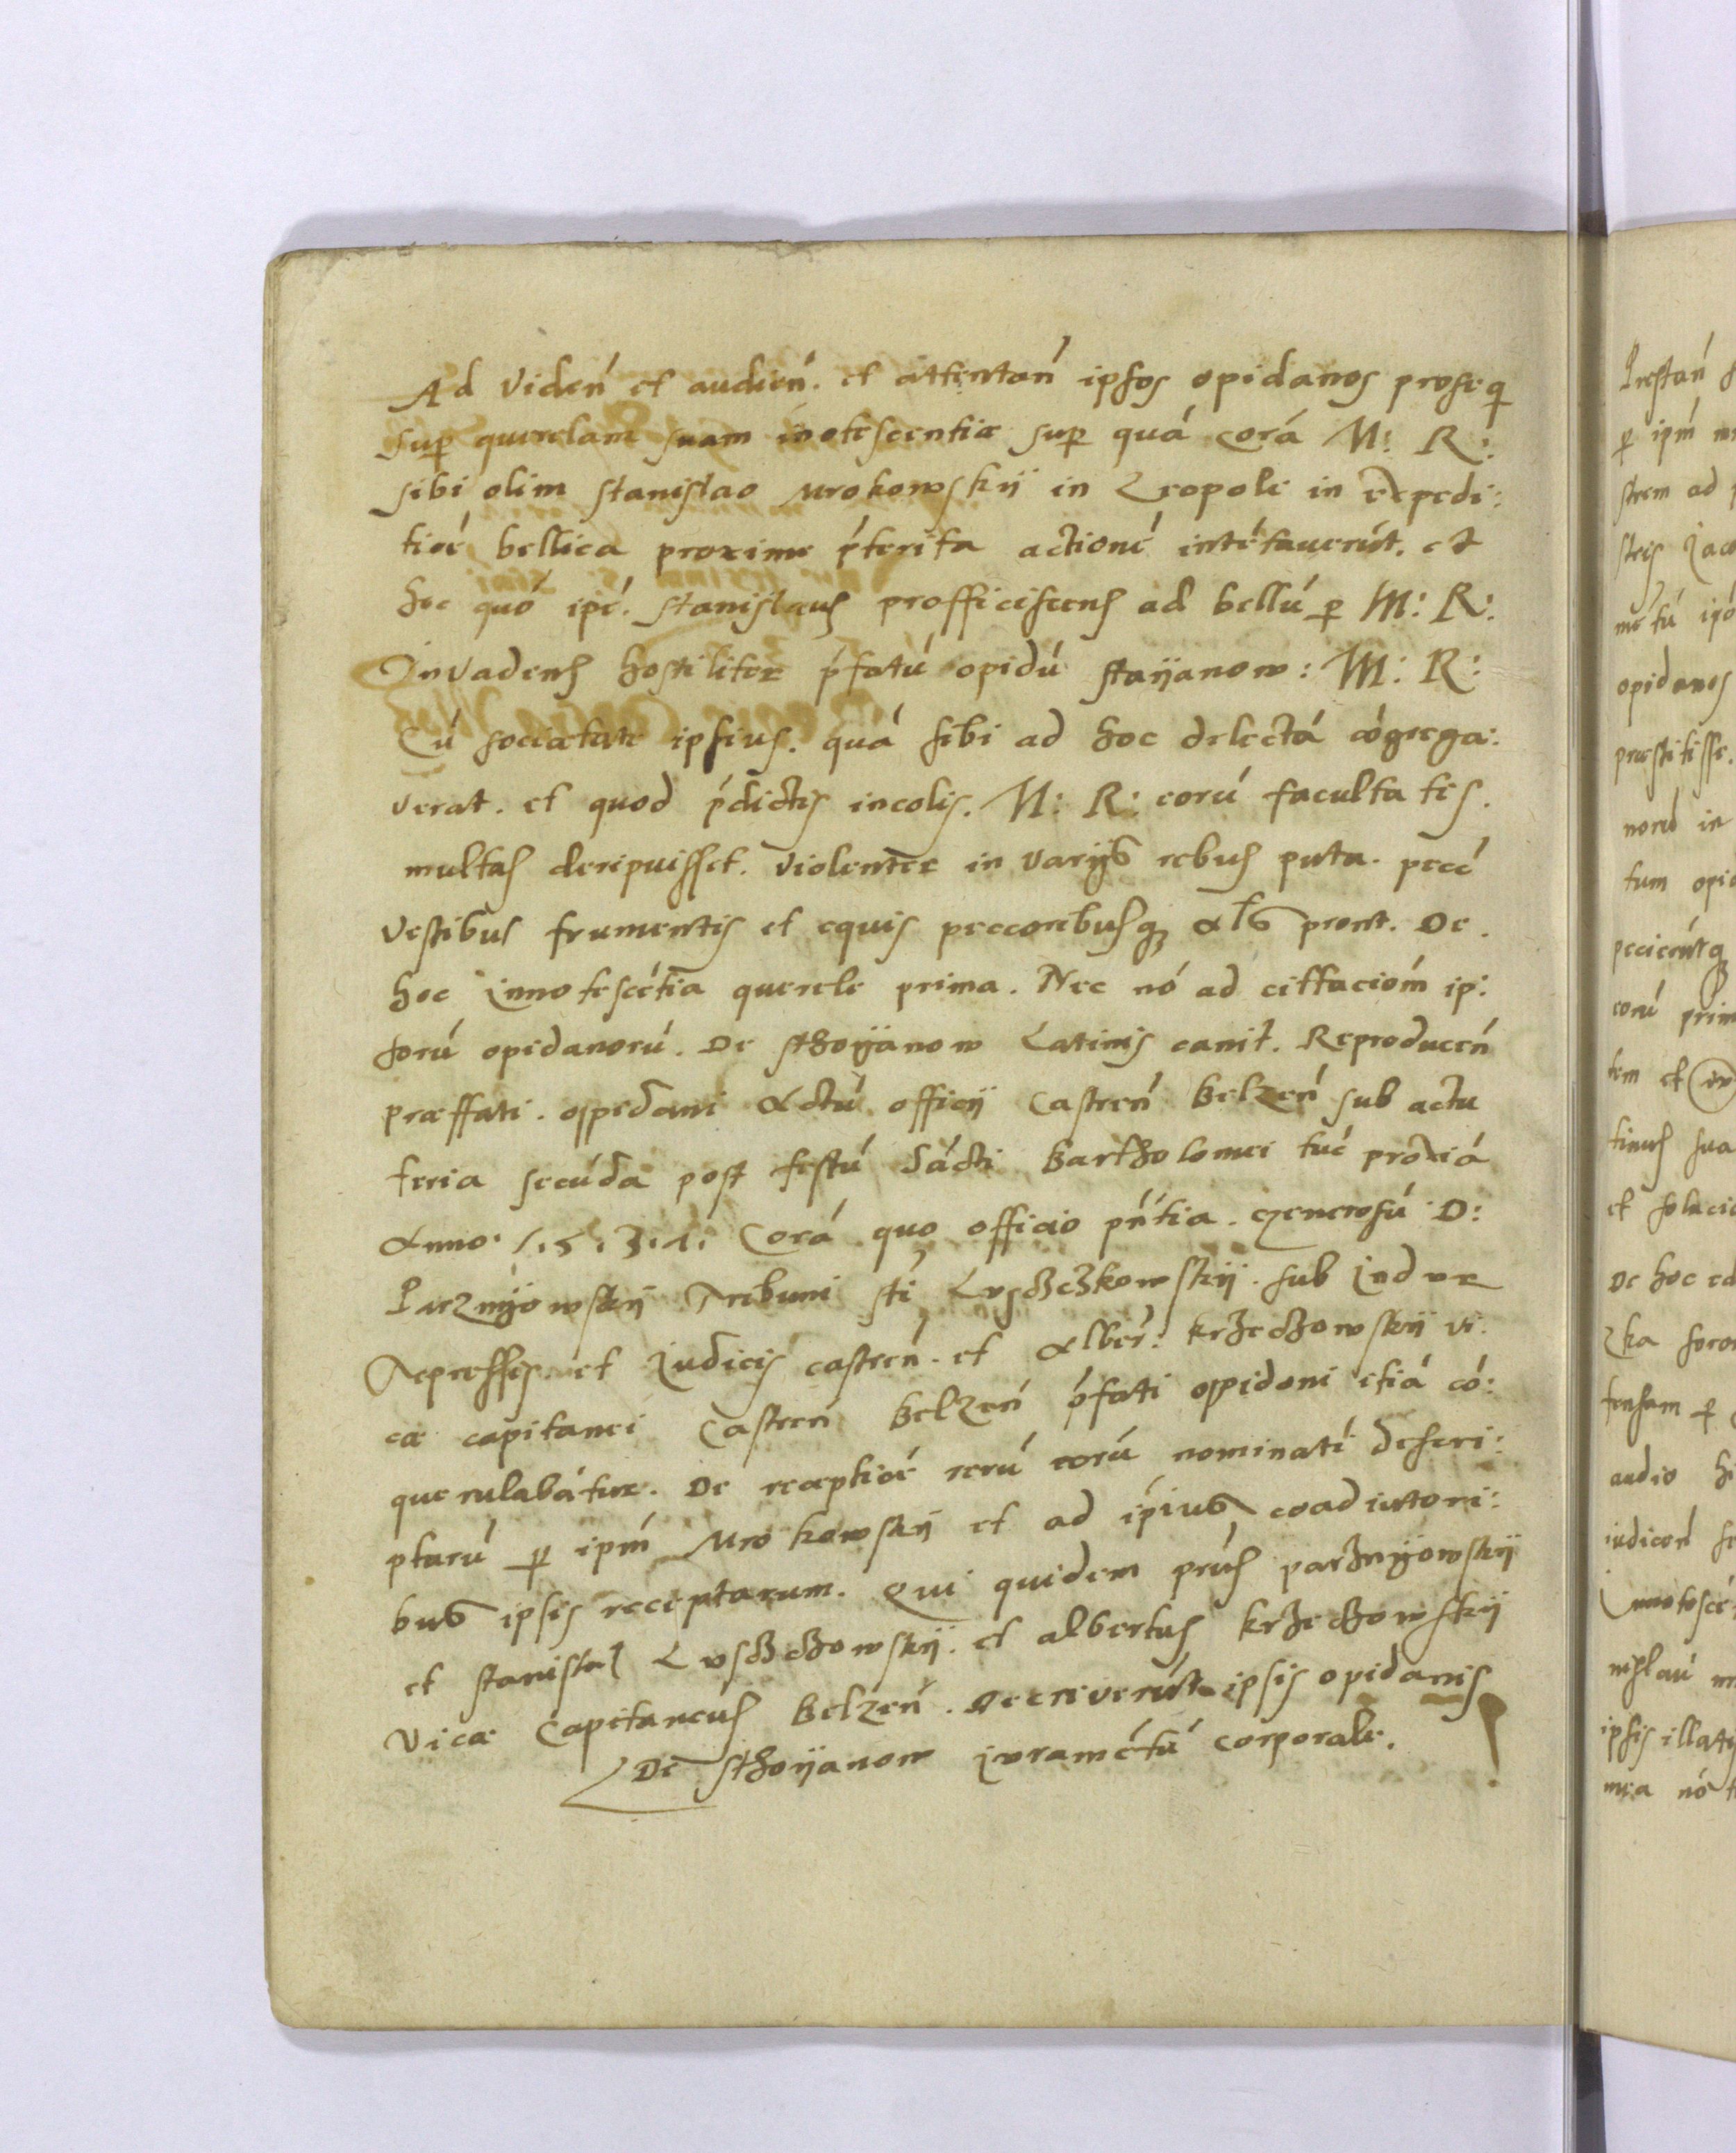 Ad Viden̄ et audien̄. et attentan̄ ipsos opidanos proseq̄
sup̄ querelam suam inotescentiae sup̄ quā corā M: R:
sibi olim Stanislao Mrokowskij in Leopoli in expedi:
tiōē bellica proxime p̄terita actionē intētaverūt. et
hoc quō ip̄e. Stanislaus profficiscens ad bellū p M: R:
Invadens hostiliter p̄fatū opidū Stayanow: M: R:
Cū societate ipsius. quā sibi ad hoc delectā cōgrega:
verat. et quod p̄dictis incolis. M: R: eorū facultates.
multas deripuisset. violenter in varijs rebus puta. pecc̄
vestibus frumentis et equis peccoribusq; prout. De.
hoc Innotescētia querele prima. Nec nō ad cittaciōm ip:
sorū opidanorū. De Sthoyanow Latinis canit. Reproducen̄
praeffati. oppidani Actū officij Castren̄ Belzen̄ sub actu
feria secūda post festū Sācti Bartholomei tūc proxiā
Anno. 1.5.3.1. Corā quo officio pn̄tia. generosū D:
Parznijowskij Tribuni Luszczkowskij. sub Judur
Repressis et Judicis castren̄. et Alber: krzeczowskij vi.
cae capitanei Castren̄ Belzen̄ p̄fati oppidani etiā cō:
querulabātur. De receptiōē rerū eorū nominatī descri:
ptarū p ipm̄ Mrokowskij et ad ip̄ius coadiutori:
bus ipsis receptarum. Qui quidem parznyowskij
et Stanisla9 Luszczowskij. et albertus krzeczowskij
Vicae Capitaneus Belzen̄. Decreverūt ipsis opidanis
De Sthoyanow Juramētū corporale.
Prestan̄
p ipm̄
strem ad
stris
opidanos
praestitisse.
norū in
tum
eorū
tem et
sua
et
De hoc
zka
fensam p
audio
iudicen̄
Innotescē
ipsis illat
mea nō